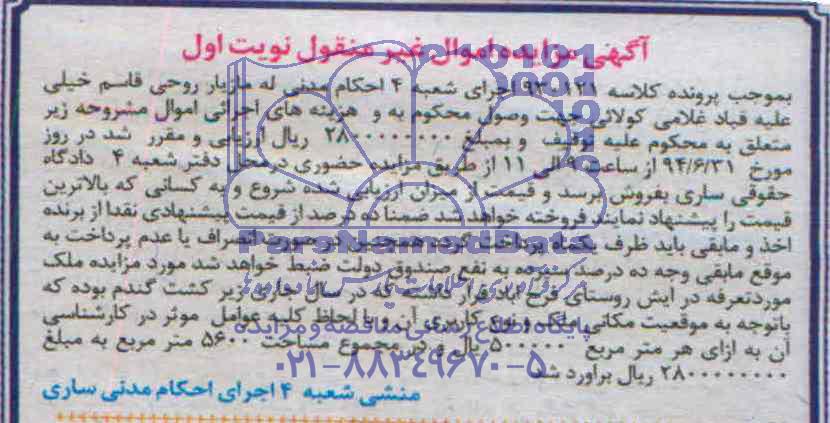 آگهی مزایده اموال غیر منقول نوبت اول
بموجب پرونده کلاسه ۹۳۰۱۲۱ اجرای شعبه ۴ احکام مدنی له مازیار روحی قاسم خیلی
علیه قباد غلامی کولائی جهت وصول محکوم به و هزینه های اجرائی اموال مشروحه زیر
متعلق به محکوم علیه توقیف و بمبلغ ۲۸۰۰۰۰۰۰۰۰ ریال ارزیابی و مقرر شد در روز
مورخ ۹۴/۶/۳۱ از ساعت ۹ الی ۱۱ از طریق مزایده حضوری درمحل دفتر شعبه ۴ دادگاه
حقوقی ساری بفروش برسد و قیمت از میزان ارزیابی شده شروع و به کسانی که بالاترین
قیمت را پیشنهاد نمایند فروخته خواهد شد ضمنا ده درصد از قیمت پیشنهادی نقدا از برنده
اخذ و مابقی باید ظرف یکماه پرداخت گردد همچنین در صورت انصراف یا عدم پرداخت به
موقع مابقی وجه ده درصد سپرده به نفع صندوق دولت ضبط خواهد شد مورد مزایده ملک
موردتعرفه در آیش روستای فرح آباد قرار داشته که در سال جاری زیر کشت گندم بوده که
باتوجه به موقعیت مکانی ملک و نوع کاربری آن و با لحاظ کلیه عوامل موثر در کارشناسی
آن به ازای هر متر مربع ۵۰۰۰۰۰ ریال و در مجموع مساحت ۵۶۰۰ متر مربع به مبلغ
۲۸۰۰۰۰۰۰۰۰ ریال براورد شد
منشی شعبه ۴ اجرای احکام مدنی ساری
ParsNamadData
پایگاه اطلاع رسانی مناقصه و مزایده
۰۲۱-۸۸۳۴۹۶۷۰-۵